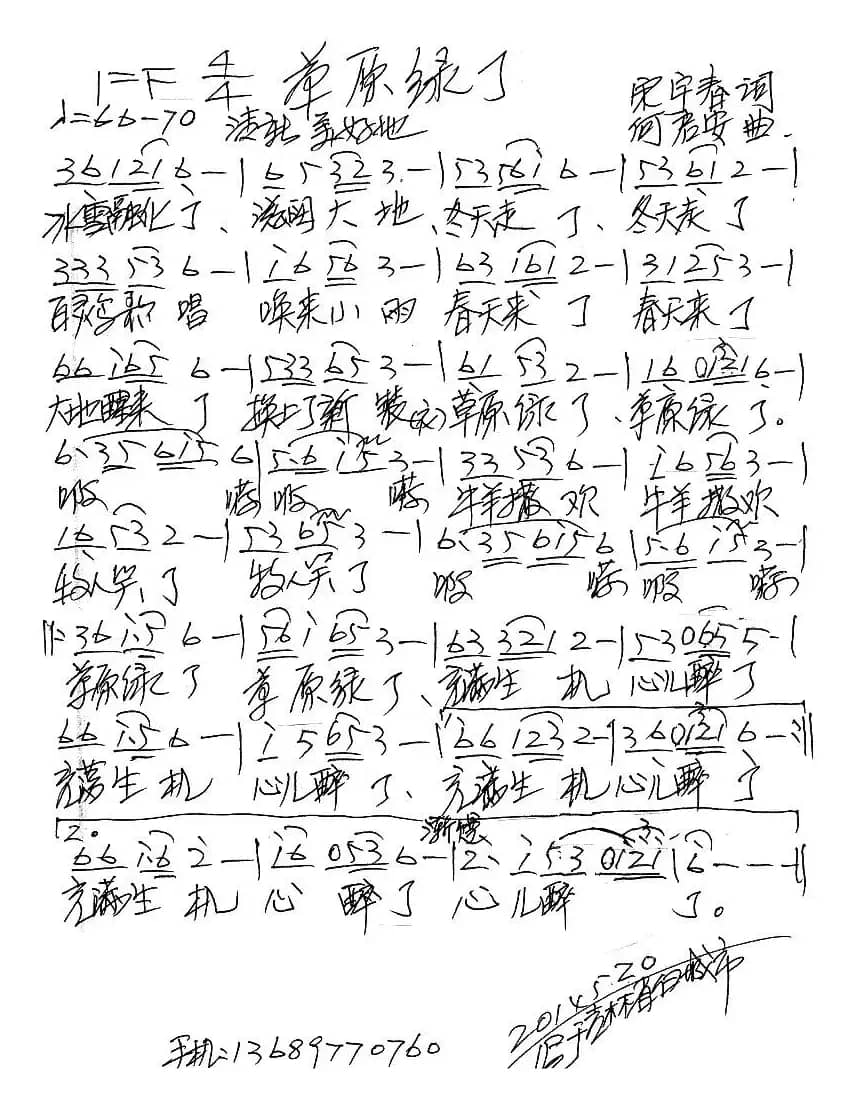 1=F 4/4 草原绿了
宋宇春 词
♩=66-70 清新 美好地
何君安 曲
36 121 6 - | 65 323 - | 53 561 6 - | 53 61 2 - |
冰雪融化了、滋润大地、冬天走了、冬天走了
333 53 6 - | i6 56 3 - | 63 161 2 - | 31 25 3 - |
百灵鸟歌唱 唤来小雨 春天来了 春天来了
66 i65 6 - | 533 65 3 - | 61 53 2 - | 16 0121 6 - |
大地醒来了 换上了新装 草原绿了、草原绿了。
6· 35 615 6 | 5·6 i5 3 - | 33 53 6 - | i6 56 3 - |
牛羊撒欢 牛羊撒欢
16 53 2 - | 53 65 3 - | 6· 35 615 6 | 5·6 i5 3 - |
牧人笑了 牧人笑了
‖: 36 i·5 6 - | 56i 65 3 - | 63 321 2 - | 53 065 5 - |
草原绿了 草原绿了、充满生机 心儿醉了
66 i·5 6 - | i 5 65 3 - | 66 123 2 - | 36 0121 6 - :‖
充满生机 心儿醉了、充满生机 心儿醉了
2。 渐慢
66 i·6 2 - | i6 053 6 - | 2· i 5·3 012i | i - - - ‖
充满生机 心醉了 心儿醉了。
2014.5.20
于吉林省白城市
手机:13689770760